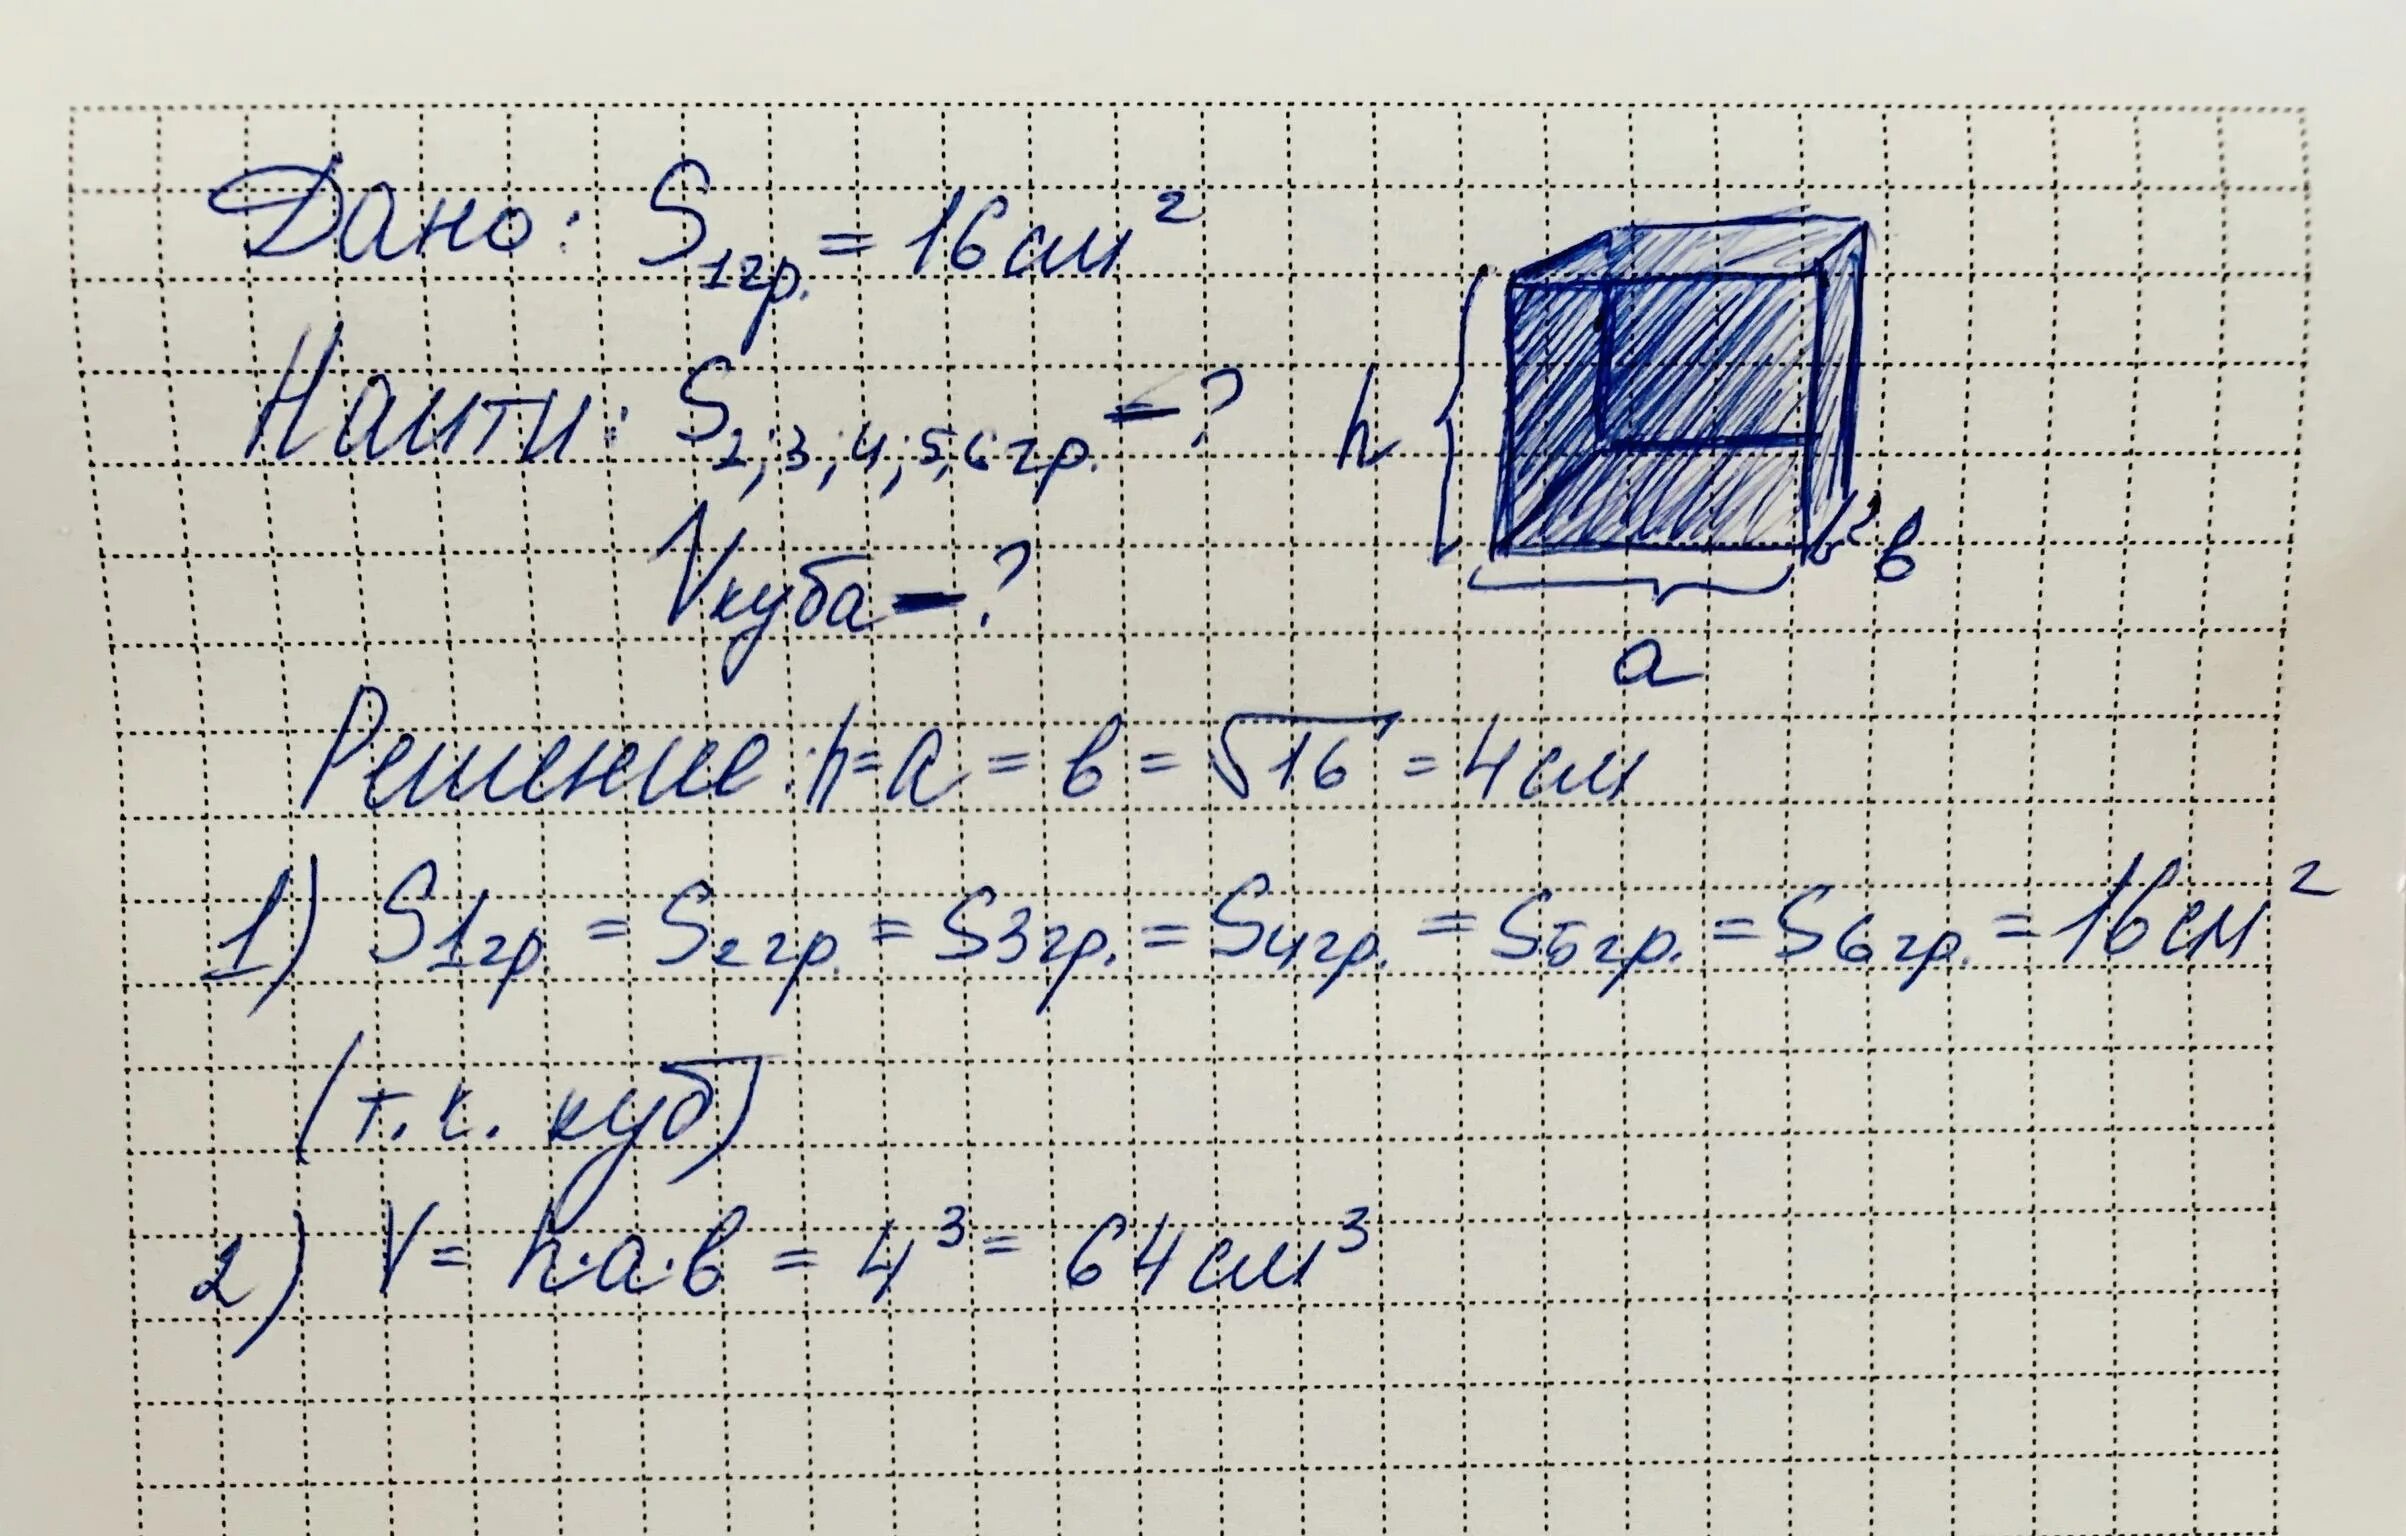 Дано: S1гр. = 16 см²
Найти: S2;3;4;5;6 гр. - ?
Vкуба - ?
h
в
a
Решение: h = a = в = √16 = 4 см
1) S1гр = S2гр. = S3гр. = S4гр. = S5гр. = S6гр. = 16 см²
(т.к. куб)
2) V = h·a·в = 4³ = 64 см³